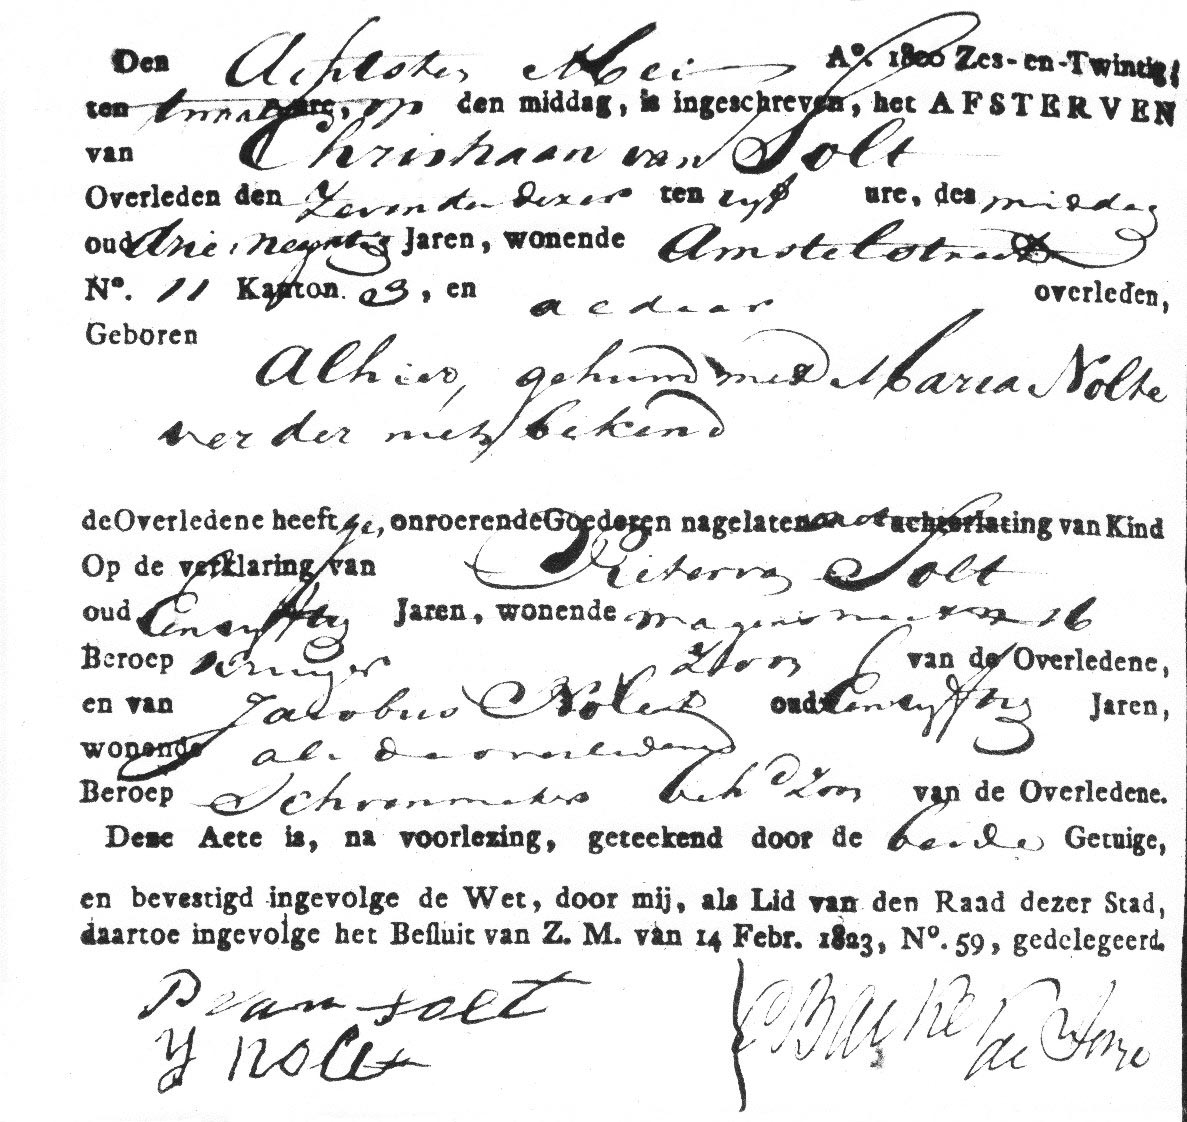 Den Achtsten Mei A°. 1800 Zes-en-Twintig,
ten twaalf ure, op den middag, is ingeschreven, het AFSTERVEN
van Christiaan van Solt
Overleden den Zevenden dezer ten vyf ure, des middag
oud drie, negentig Jaren, wonende Amstelstraat
N°. 11 Kanton 3, en aldaar overleden,
Geboren
Alhier, gehuwd met Maria Nolte
verder niet bekend
de Overledene heeft ge, onroerende Goederen nagelaten achterlating van Kind
Op de verklaring van Pieter van Solt
oud Een vyftig Jaren, wonende 16
Beroep Zoon van de Overledene,
en van Jacobus Nolet oud Een vyftig Jaren,
wonende als de overledene
Beroep Schoenmaker beh^d Zoon van de Overledene.
Deze Acte is, na voorlezing, geteekend door de beide Getuige,
en bevestigd ingevolge de Wet, door mij, als Lid van den Raad dezer Stad,
daartoe ingevolge het Besluit van Z. M. van 14 Febr. 1823, N°. 59, gedelegeerd.
P van solt
J Nolet